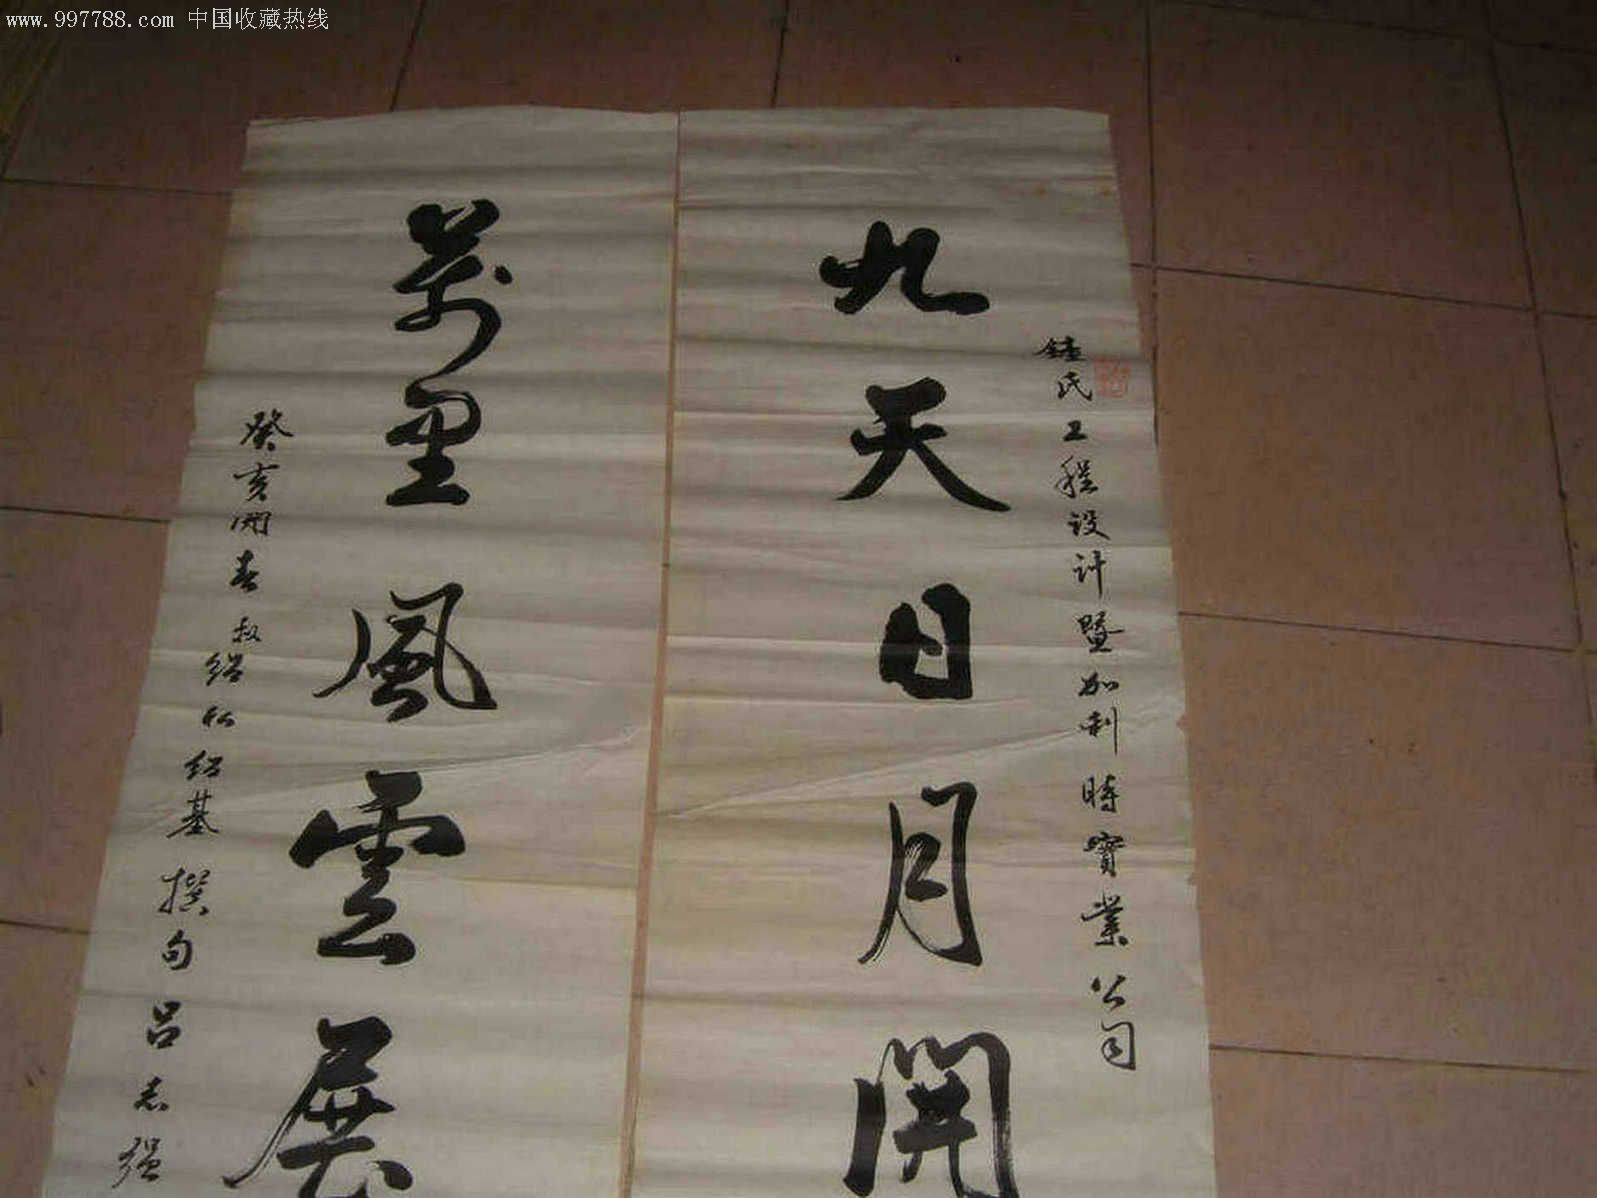 www.997788.com 中国收藏热线
鍾氏工程设计暨加利時實業公司
九天日月開
萬里風雲展
癸亥開春叔紹仁紹基撰句吕志强